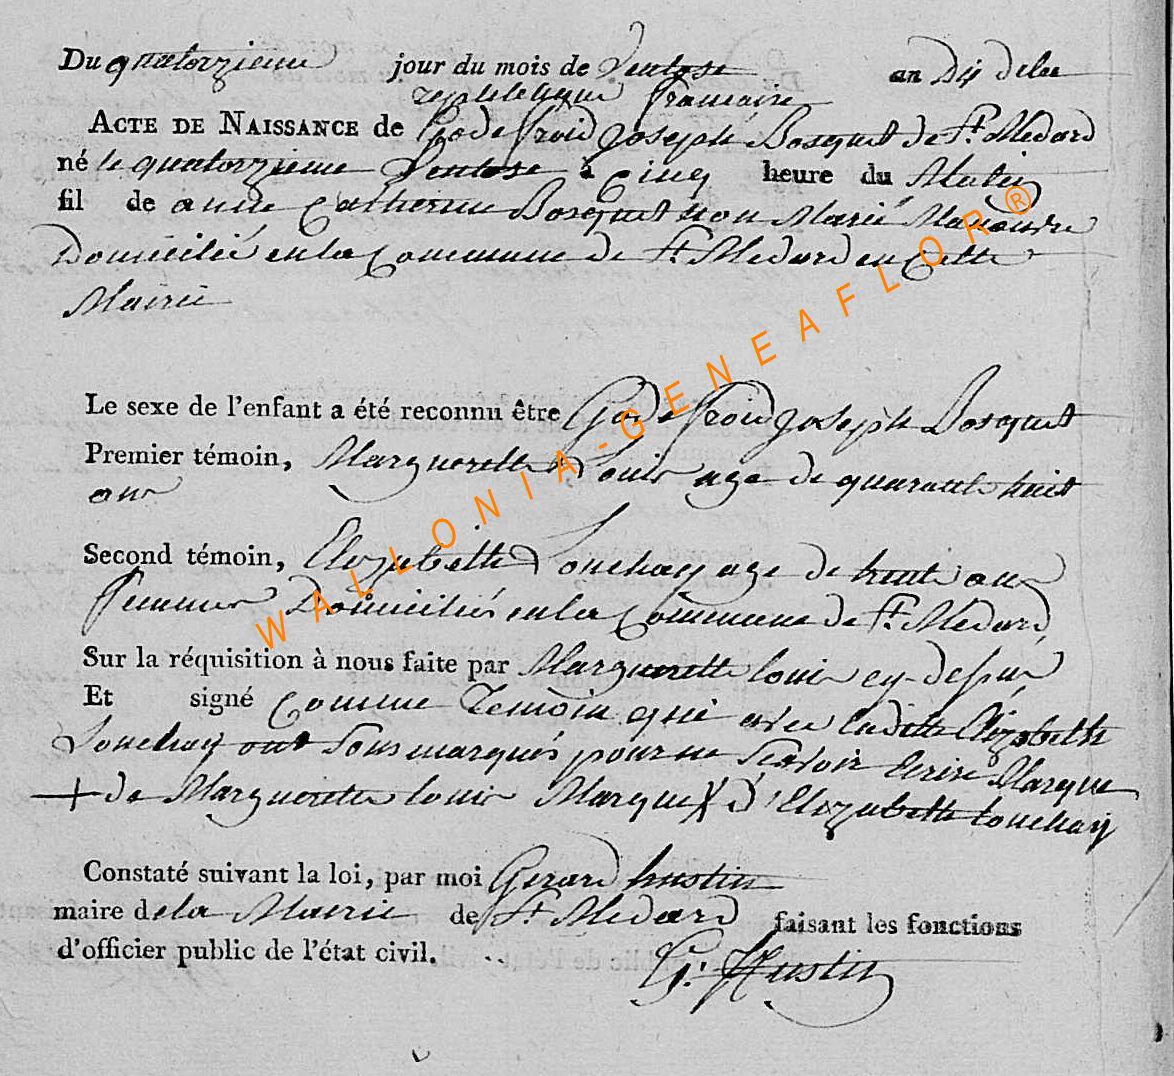 Du quatorzieme jour du mois de Ventose an Dix de la
republique francaise
ACTE DE NAISSANCE de Godeffroid Joseph Bosquet de St. Medard
né le quatorzieme Ventose à Cinq heure du Matin
fil de anne Catherine Bosquet non Marié Manouvre
Domicilié en la Commune de St. Medard en Cette
Mairie
Le sexe de l'enfant a été reconnu être Godeffroid Joseph Bosquet
Premier témoin, Marguerette Louis age de quarante huit
ans
Second témoin, Elizabette Louchay age de huit ans
femmes Domiciliés en la Commune de St. Medard
Sur la réquisition à nous faite par Marguerette louis cy-dessus
Et signé Comme Temoin qui avec laditte Elizabette
Louchay ont Sousmarqués pour ne Scavoir Ecrire Marque
+ de Marguerette louis Marque X d'Elizabette louchay
Constaté suivant la loi, par moi Gerard hustin
maire de la Mairie de St. Medard faisant les fonctions
d'officier public de l'état civil.
G. Hustin
WALLONIA-GENEAFLOR®